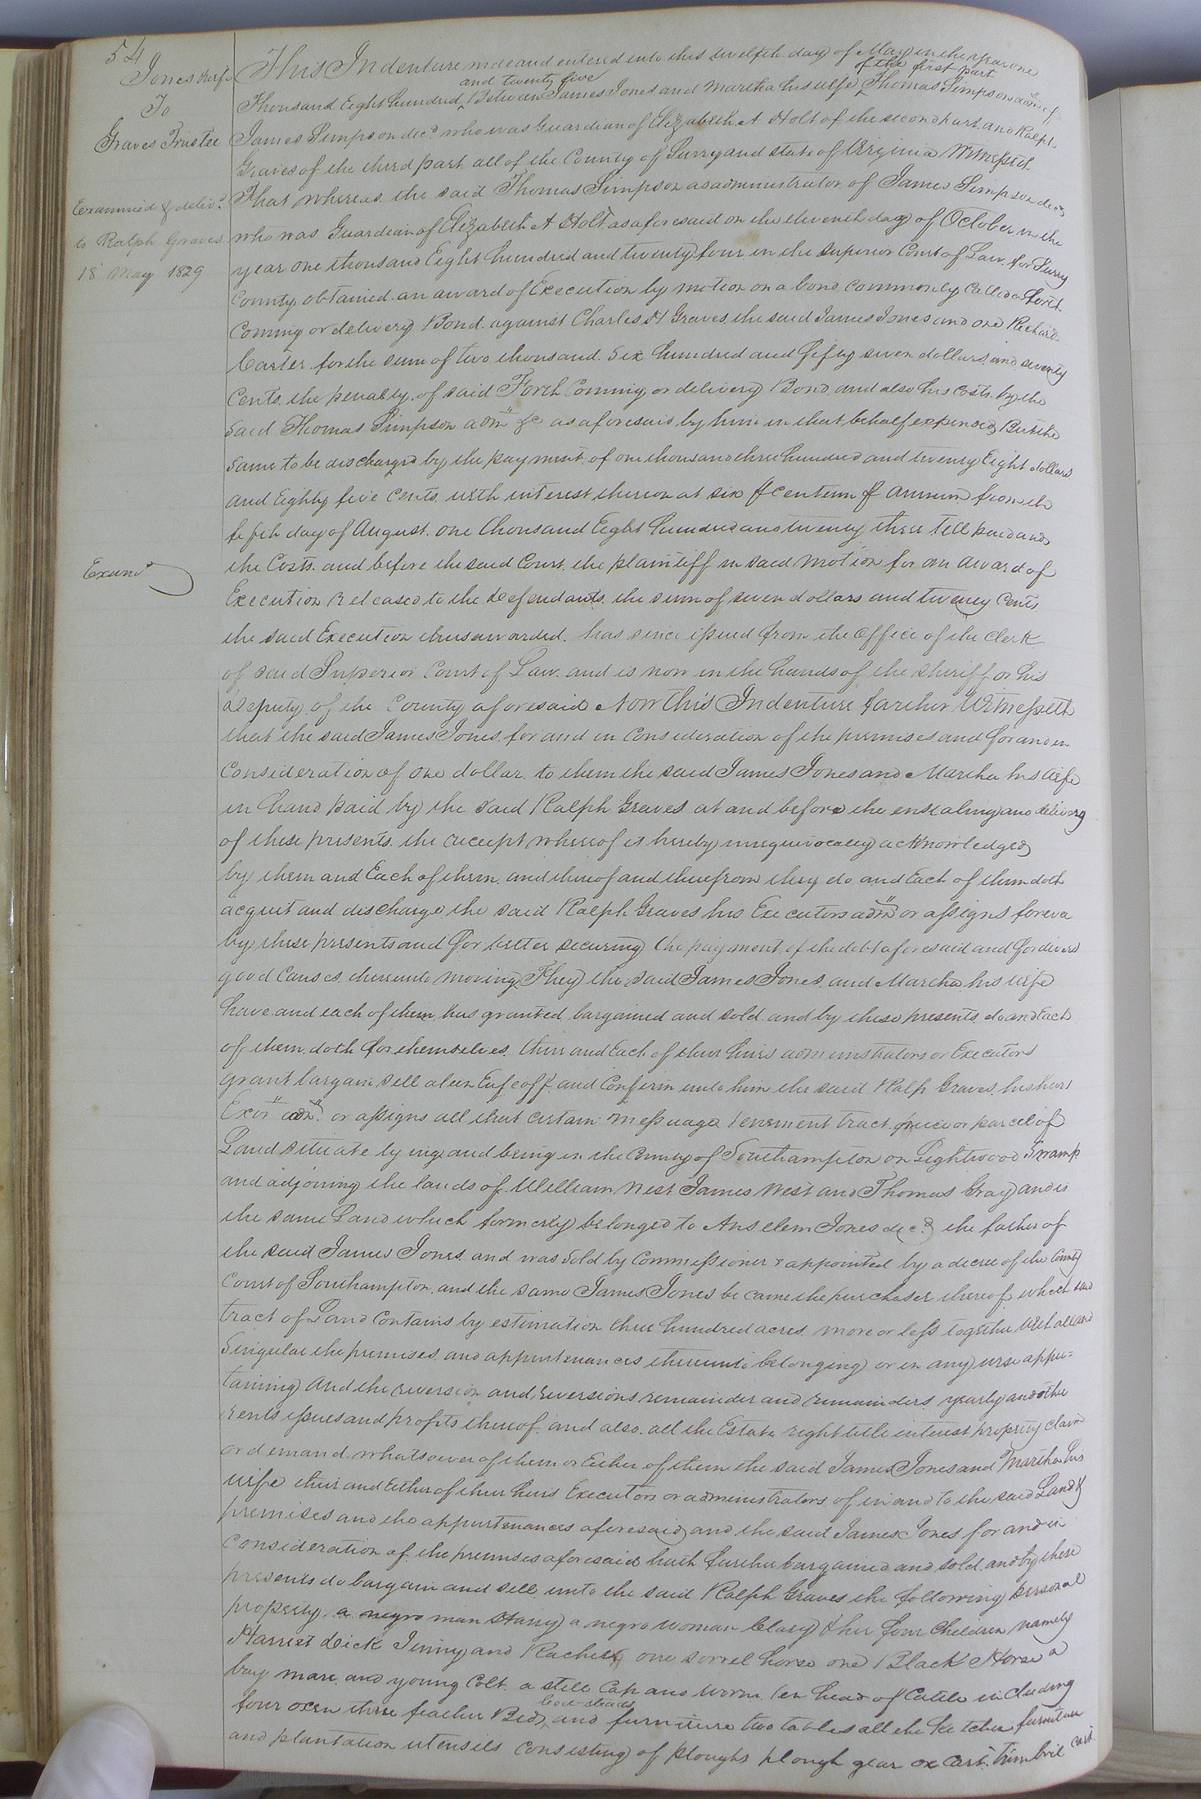 54
Jones &wife
To
Graves Trustee
Examined & deliv.d
to Ralph Graves
18 May 1829
Examd
This Indenture made and entered into this twelfth day of May in the year one
and twenty five of the first part
Thousand Eight hundred Between James Jones and Martha his wife Thomas Simpson adm of
James Simpson decd who was Guardian of Elizabeth A Holt of the second part and Ralph
Graves of the third part all of the County of Surry and state of Virginia Witnesseth
That whereas the said Thomas Simpson as administrator of James Simpson decd
who was Guardian of Elizabeth A Holt as aforesaid on the eleventh day of October in the
year one thousand Eight hundred and twenty four in the superior Court of Law for Surry
County obtained an award of Execution by motion on a bond commonly called a forth
Coming or delivery Bond against Charles H Graves the said James Jones and one Richard
Carter for the sum of two thousand Six hundred and fifty seven dollars and seventy
Cents the penalty of said Forth Coming or delivery Bond and also his Costs by the
Said Thomas Simpson adm &c as aforesaid by him in that behalf expended But the
Same to be discharged by the payment of one thousand three hundred and twenty Eight dollars
and Eighty five Cents with interest thereon at six P centum P annum from the
fifth day of August one thousand Eight hundred and twenty three till paid and
the Costs and before the said Court the plaintiff in said motion for an award of
Execution Released to the defendants the sum of seven dollars and twenty Cents
the said Execution thus awarded has since issued from the office of the Clerk
of said Superior Court of Law and is now in the hands of the sheriff or his
deputy of the County aforesaid Now this Indenture farther Witnesseth
that the said James Jones for and in Consideration of the premises and for and in
Consideration of one dollar to them the said James Jones and Martha his wife
in hand paid by the said Ralph Graves at and before the ensealing and delivery
of these presents the receipt whereof is hereby unequivocally acknowledged
by them and Each of them and thereof and therefrom they do and Each of them doth
acquit and discharge the said Ralph Graves his Executors adm or assigns forever
by these presents and for better securing the payment of the debt aforesaid and for divers
good Causes thereunto moving They the said James Jones and Martha his wife
have and each of them has granted bargained and sold and by these presents do and Each
of them doth for themselves their and Each of their heirs administrators or Executors
grant bargain sell alien Enfeoff and Confirm unto him the said Ralp Graves his heirs
Exors adm or assigns all that certain messuage tenement tract piece or parcel of
Land situate lying and being in the County of Southampton on Lightwood Swamp
and adjoining the lands of William West James West and Thomas Gray and is
the same Land which formerly belonged to Anselem Jones decd the father of
the said James Jones and was Sold by Commissioners appointed by a decree of the County
Court of Southampton and the same James Jones became the purchaser thereof which said
tract of Land Contains by estimation three hundred acres more or less together with all and
Singular the premises and appurtenances thereunto belonging or in any wise appur=
taining And the reversion and reversions remainder and remainders yearly and other
rents issues and profits thereof and also all the Estate right title interest property claim
or demand whatsoever of them or Either of them the said James Jones and Martha his
wife their and Either of their heirs Executors or administrators of in and to the said Land &
premises and the appurtenances aforesaid and the said James Jones for and in
Consideration of the premises aforesaid hath further bargained and sold and by these
presents do bargain and sell unto the said Ralph Graves the following personal
property a negro man Harry a negro woman Clary & her four Children namely
Harriet Dick Jinny and Rachel one sorrel horse one Black Horse a
bay mare and young Colt a still Cap and worm ten head of Cattle including
bed-steads
four oxen three feather Beds and furniture two tables all the kitchen furniture
and plantation utensils Consisting of ploughs plough gear ox Cart tumbril cart